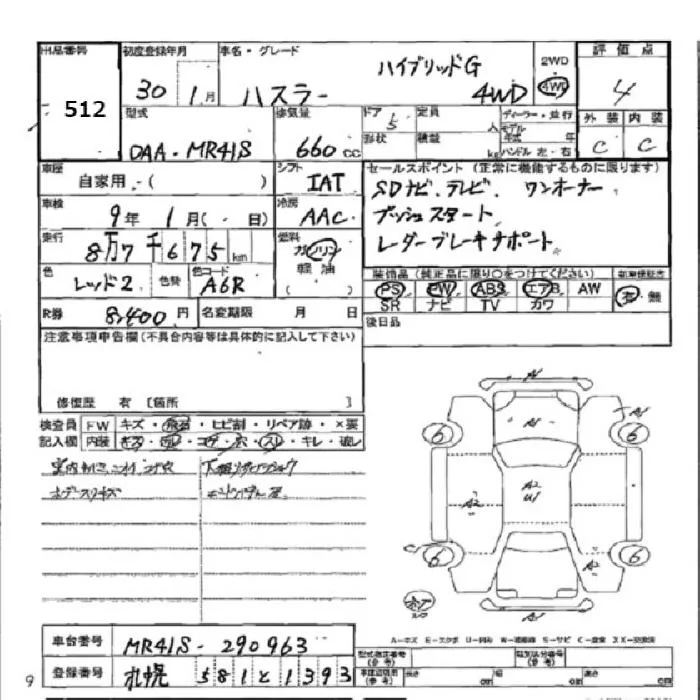 出品番号 初度登録年月 車名・グレード 2WD 評価点
512 30 1月 ハスラー ハイブリッドG 4WD 4WD 4
型式 排気量 ドア 定員 ディーラー・並行 外装 内装
DAA・MR41S 660cc 5 人 モデル年式 年
形状 積載 kg ハンドル 左・右 C C
車歴 シフト セールスポイント(正常に機能するものに限ります)
自家用・( ) IAT SDナビ.テレビ. ワンオーナー
車検 冷房 プッシュスタート
9年 1月(・日) AAC レーダーブレーキサポート
走行 燃料
8万7千675km ガソリン
軽油
( )
装備品(純正品に限り○をつけてください) 新車保証書
色 色替 色コード PS PW ABS エアB AW 有・無
レッド2 A6R SR ナビ TV カワ
R券 8,400円 名変期限 月 日 後日品
注意事項申告欄(不具合内容等は具体的に記入して下さい)
修復歴 有 [箇所 ]
検査員 FW キズ・飛石・ヒビ割・リペア跡・×要
記入欄 内装 キズ・汚レ・コゲ・穴・スレ・キレ・破レ
A1 A1 A1
6 6
A2 A2
U1 A2
6 6
A2
A1
A-キズ E-エクボ U-凹み W-補修跡 S-サビ C-腐食 XX-交換済
車台番号 MR41S-290963 型式指定番号(参考) 類別区分番号(参考)
登録番号 札幌 581 と 1393 長さ cm 幅 cm 高さ cm
9